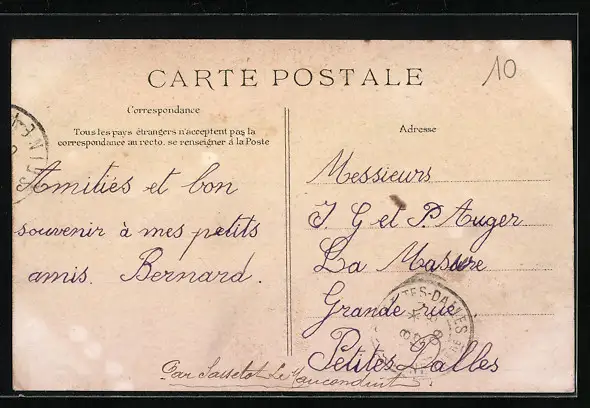 10
CARTE POSTALE
Correspondance
Tous les pays étrangers n'acceptent pas la
correspondance au recto. se renseigner à la Poste
Adresse
Amitiés et bon
souvenir à mes petits
amis. Bernard.
Messieurs
J. G et P. Auger
La Masure
Grande rue
Petites Dalles
Par Sassetot Le Mauconduit
TES-DALLES